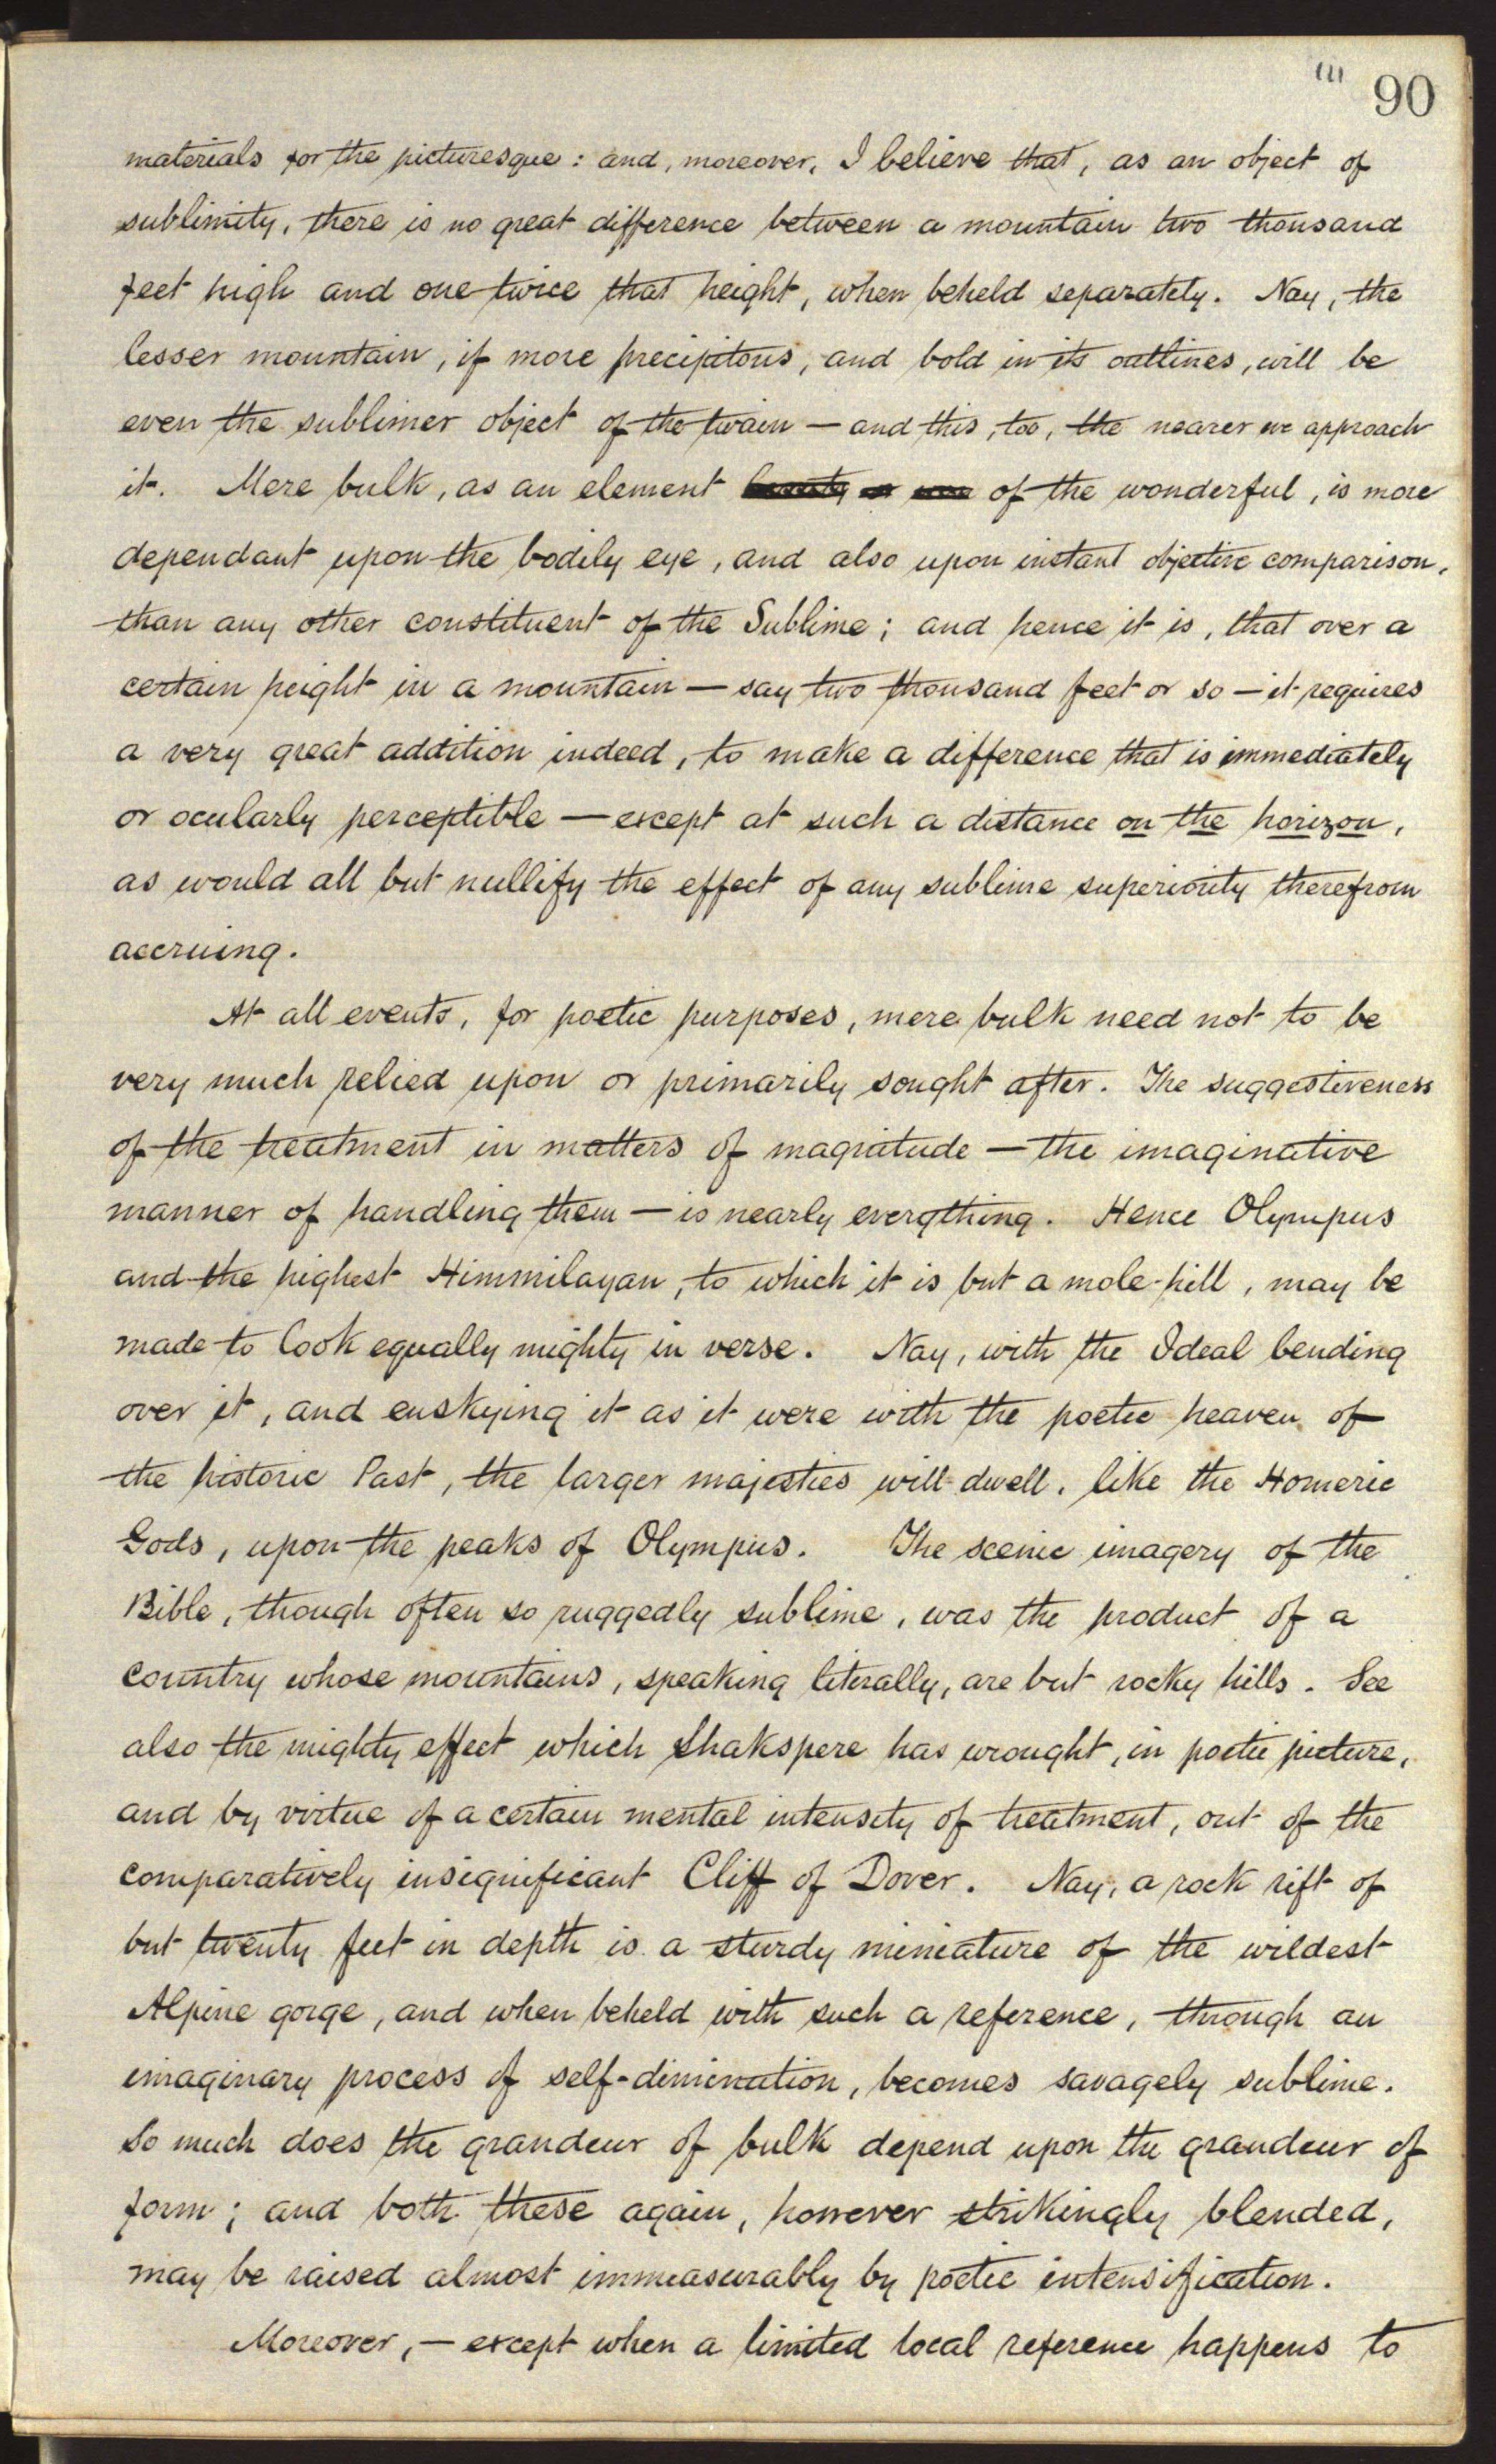 90
materials for the picturesque : and, moreover, I believe that, as an object of
sublimity, there is no great difference between a mountain two thousand
feet high and one twice that height, when beheld separately. Nay, the
lesser mountain, if more precipitous, and bold in its outlines, will be
even the sublimer object of the twain — and this, too, the nearer we approach
it. Mere bulk, as an element of the wonderful, is more
dependant upon the bodily eye, and also upon instant objective comparison,
than any other constituent of the Sublime ; and hence it is, that over a
certain height in a mountain — say two thousand feet or so — it requires
a very great addition indeed, to make a difference that is immediately
or ocularly perceptible — except at such a distance on the horizon,
as would all but nullify the effect of any sublime superiority therefrom
accruing.
At all events, for poetic purposes, mere bulk need not to be
very much relied upon or primarily sought after. The suggestiveness
of the treatment in matters of magnitude — the imaginative
manner of handling them — is nearly everything. Hence Olympus
and the highest Himmilayan, to which it is but a mole-hill, may be
made to look equally mighty in verse. Nay, with the Ideal bending
over it, and enskying it as it were with the poetic heaven of
the historic Past, the larger majesties will dwell, like the Homeric
Gods, upon the peaks of Olympus. The scenic imagery of the
Bible, though often so ruggedly sublime, was the product of a
country whose mountains, speaking literally, are but rocky hills. See
also the mighty effect which Shakspere has wrought, in poetic picture,
and by virtue of a certain mental intensity of treatment, out of the
comparatively insignificant Cliff of Dover. Nay, a rock rift of
but twenty feet in depth is a sturdy miniature of the wildest
Alpine gorge, and when beheld with such a reference, through an
imaginary process of self-diminution, becomes savagely sublime.
So much does the grandeur of bulk depend upon the grandeur of
form ; and both these again, however strikingly blended,
may be raised almost immeasurably by poetic intensification.
Moreover, — except when a limited local reference happens to